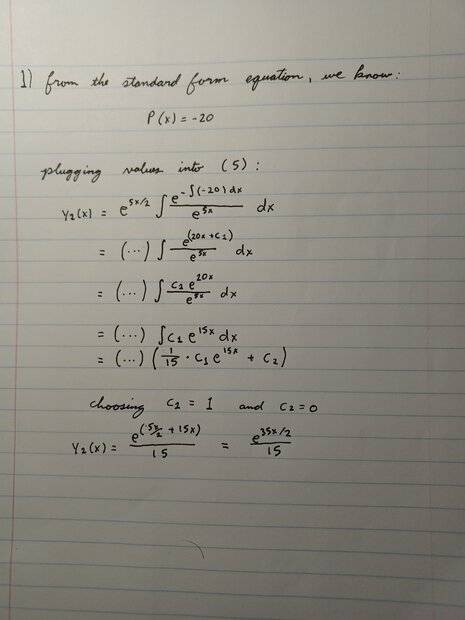 1) from the standard form equation, we know:
P(x) = -20
plugging values into (5):
y₂(x) = e^(5x/2) ∫ e^(-∫(-20)dx) / e^(5x) dx
= (...) ∫ e^((20x + c₁)) / e^(5x) dx
= (...) ∫ c₁ e^(20x) / e^(5x) dx
= (...) ∫ c₁ e^(15x) dx
= (...) (1/15 · c₁ e^(15x) + c₂)
choosing c₁ = 1 and c₂ = 0
y₂(x) = e^((5x/2 + 15x)) / 15 = e^(35x/2) / 15